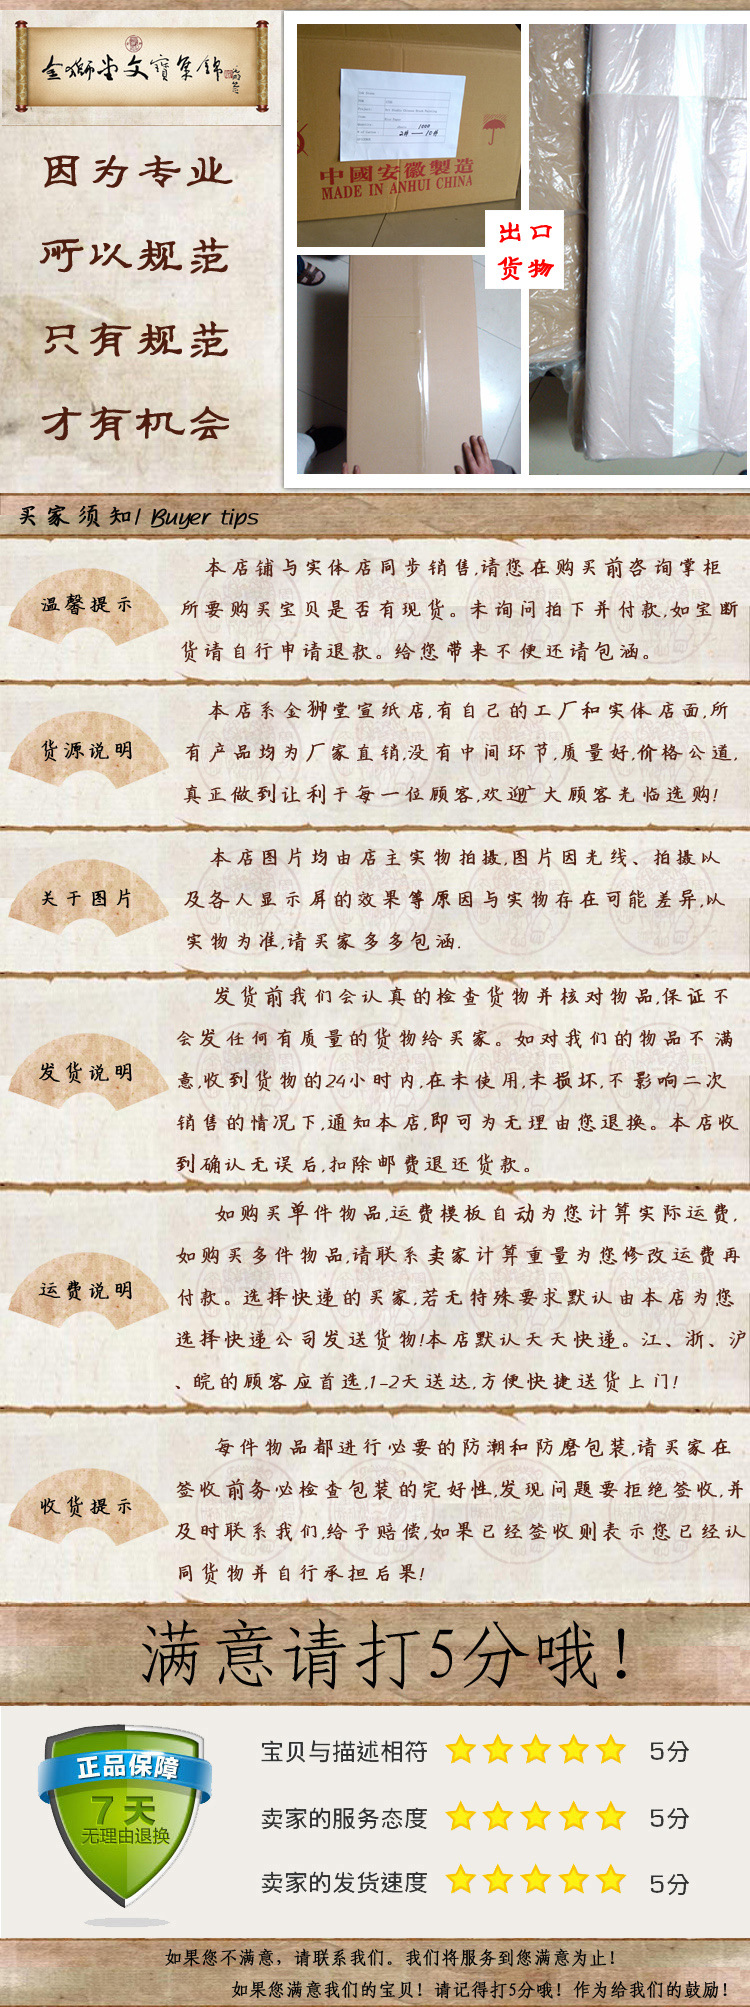 金獅堂文寶集錦
因为专业
所以规范
只有规范
才有机会
中國安徽製造
MADE IN ANHUI CHINA
出口
货物
买家须知/ Buyer tips
温馨提示
本店铺与实体店同步销售,请您在购买前咨询掌柜
所要购买宝贝是否有现货。未询问拍下并付款,如宝断
货请自行申请退款。给您带来不便还请包涵。
货源说明
本店系金狮堂宣纸店,有自己的工厂和实体店面,所
有产品均为厂家直销,没有中间环节,质量好,价格公道,
真正做到让利于每一位顾客,欢迎广大顾客光临选购!
关于图片
本店图片均由店主实物拍摄,图片因光线、拍摄以
及各人显示屏的效果等原因与实物存在可能差异,以
实物为准,请买家多多包涵.
发货说明
发货前我们会认真的检查货物并核对物品,保证不
会发任何有质量的货物给买家。如对我们的物品不满
意,收到货物的24小时内,在未使用,未损坏,不影响二次
销售的情况下,通知本店,即可为无理由您退换。本店收
到确认无误后,扣除邮费退还货款。
运费说明
如购买单件物品,运费模板自动为您计算实际运费,
如购买多件物品,请联系卖家计算重量为您修改运费再
付款。选择快递的买家,若无特殊要求默认由本店为您
选择快递公司发送货物!本店默认天天快递。江、浙、沪
、皖的顾客应首选,1-2天送达,方便快捷送货上门!
收货提示
每件物品都进行必要的防潮和防磨包装,请买家在
签收前务必检查包装的完好性,发现问题要拒绝签收,并
及时联系我们,给予赔偿,如果已经签收则表示您已经认
同货物并自行承担后果!
满意请打5分哦!
正品保障
7天
无理由退换
宝贝与描述相符 5分
卖家的服务态度 5分
卖家的发货速度 5分
如果您不满意，请联系我们。我们将服务到您满意为止!
如果您满意我们的宝贝! 请记得打5分哦! 作为给我们的鼓励!